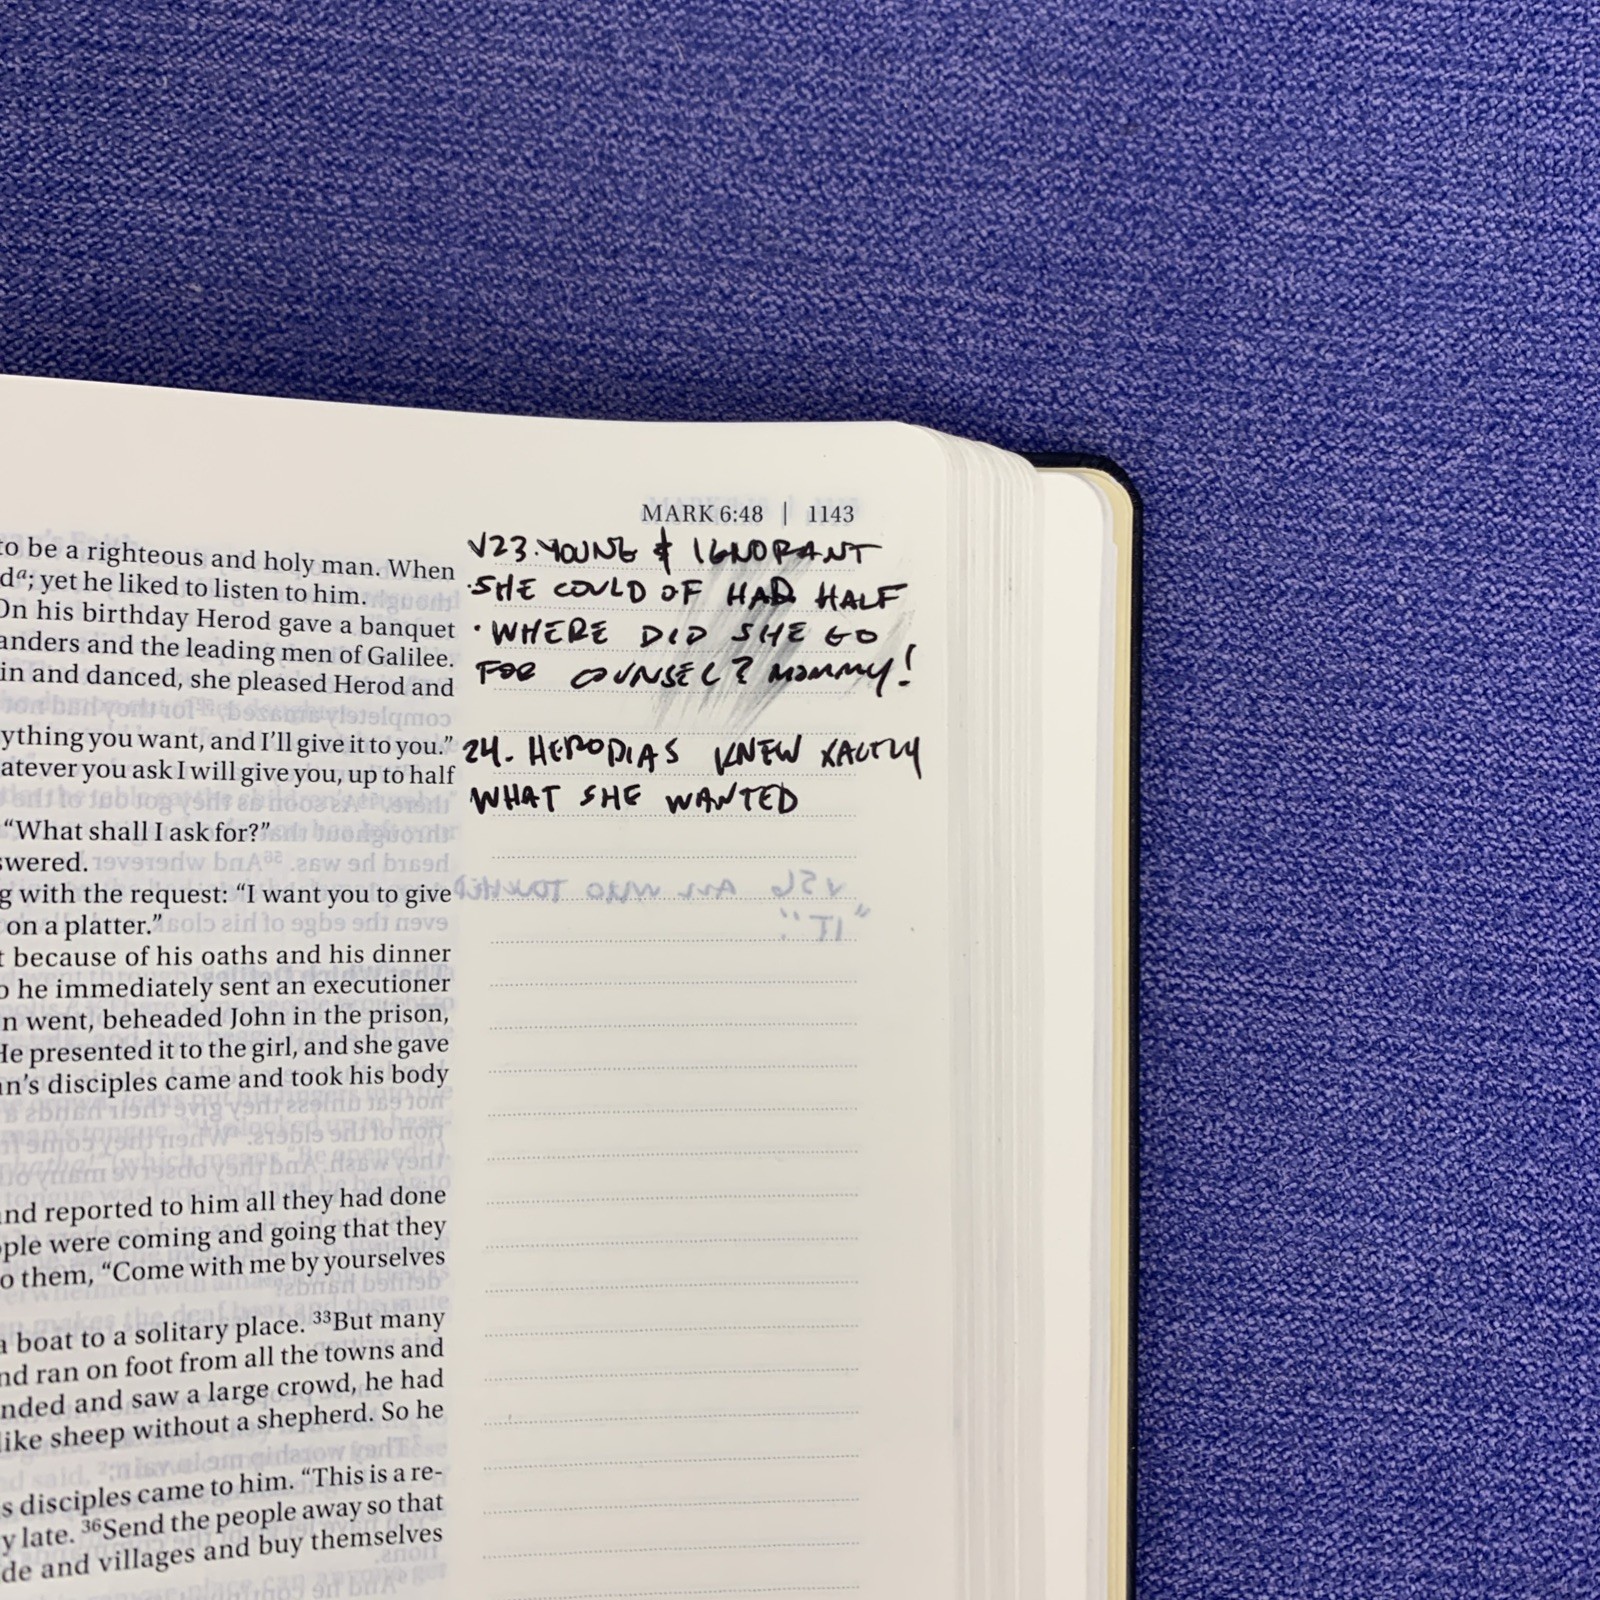 MARK 6:48 | 1143
to be a righteous and holy man. When
dᵃ; yet he liked to listen to him.
On his birthday Herod gave a banquet
anders and the leading men of Galilee.
in and danced, she pleased Herod and
ything you want, and I'll give it to you."
atever you ask I will give you, up to half
"What shall I ask for?"
swered.
g with the request: "I want you to give
on a platter."
t because of his oaths and his dinner
o he immediately sent an executioner
n went, beheaded John in the prison,
He presented it to the girl, and she gave
n's disciples came and took his body
nd reported to him all they had done
ple were coming and going that they
o them, "Come with me by yourselves
a boat to a solitary place. ³³But many
nd ran on foot from all the towns and
nded and saw a large crowd, he had
like sheep without a shepherd. So he
s disciples came to him. "This is a re-
y late. ³⁶Send the people away so that
de and villages and buy themselves
V23. YOUNG & IGNORANT
·SHE COULD OF HAD HALF
· WHERE DID SHE GO
FOR COUNSEL? MOMMY!
24. HERODIAS KNEW XACTLY
WHAT SHE WANTED
V56 ALL WHO TOUCHED
"IT"